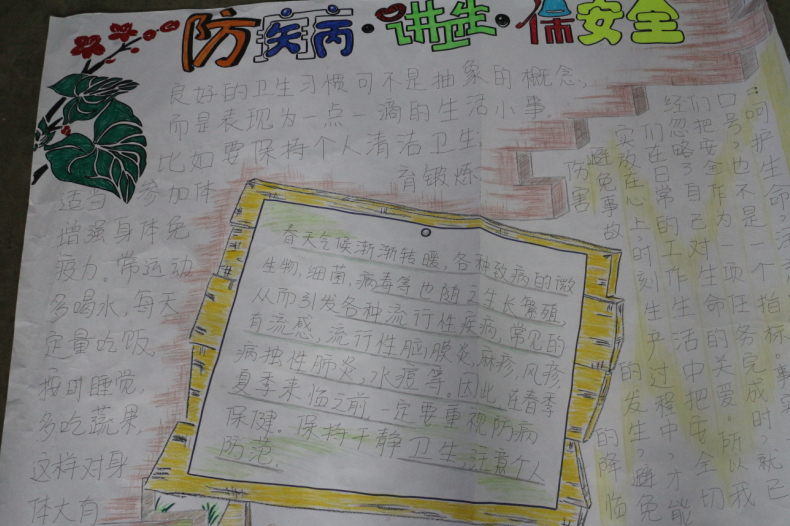 防疾病·讲卫生·保安全
良好的卫生习惯可不是抽象的概念，
而是表现为一点一滴的生活小事.
比如要保持个人清洁卫生
适当 参加体 育锻炼.
增强身体免
疫力.常运动
多喝水,每天
定量吃饭,
按时睡觉,
多吃蔬果,
这样对身
体大有
春天气候渐渐转暖,各种致病的微
生物,细菌,病毒等也随之生长繁殖,
从而引发各种流行性疾病,常见的
有流感,流行性脑膜炎,麻疹,风疹
病独性肺炎,水痘等。因此,在春季
夏季来临之前,一定要重视防病
保健。保持干静卫生,注意个人
防范.
呵护生命
口号,也不是一个指标.
们把安全作为一项任务完成时,就已
经忽略了自己对生命的关爱.所以我
们在日常的工作生活中把安全切
实放在心上,时刻生产过程中,才能
避免事故的发生,避免
防害的降临